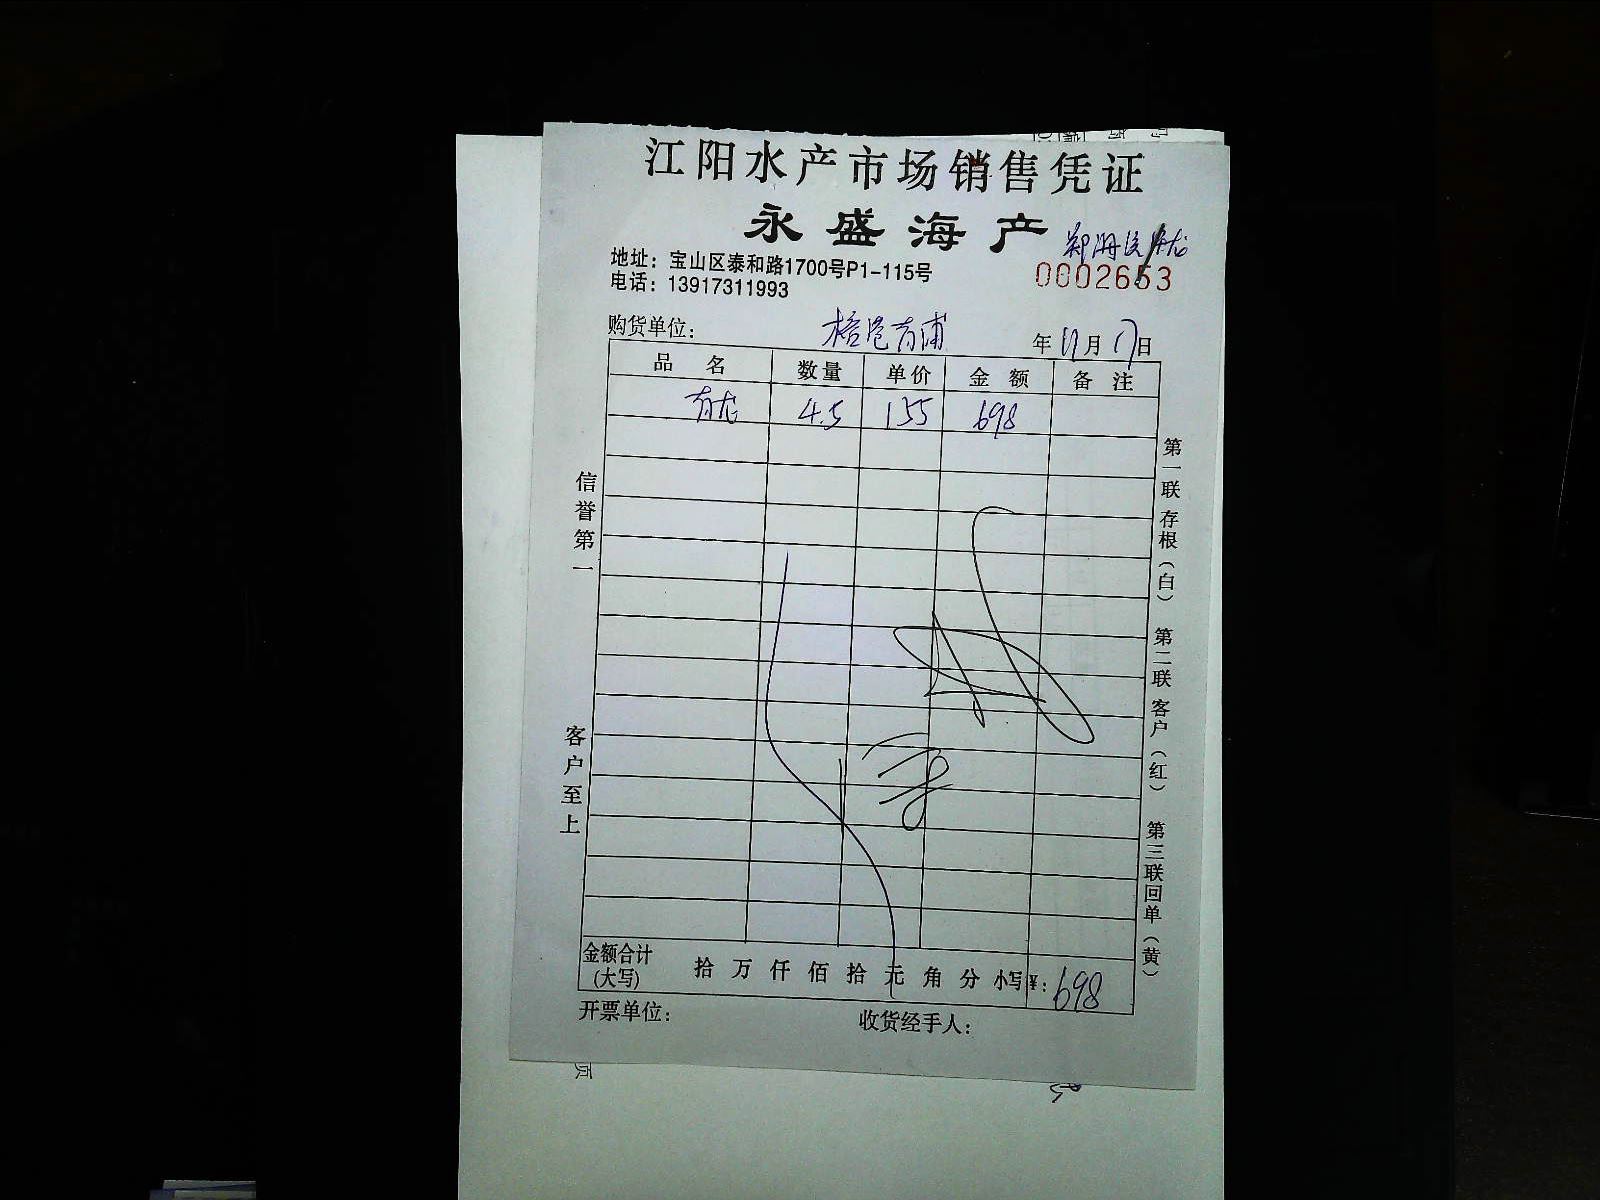 江阳水产市场销售凭证
永盛海产
地址：宝山区泰和路1700号P1-115号
电话：13917311993
0002653
购货单位： 年 月 17日
品名 数量 单价 金额 备注
青龙 4.5 155 698
信誉第一
客户至上
第一联存根（白）
第二联客户（红）
第三联回单（黄）
金额合计(大写) 拾 万 仟 佰 拾 元 角 分 小写¥：698
开票单位： 收货经手人：